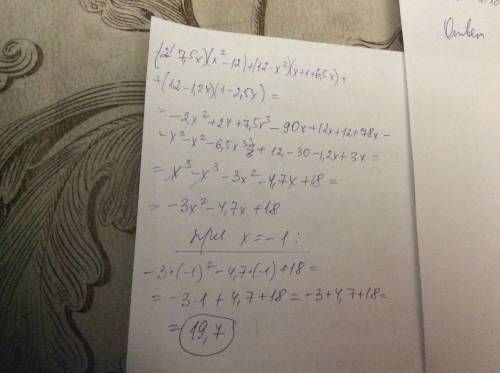 -(2-7,5x)(x²-12)+(12-x²)(x+1+6,5x)+
+(12-1,2x)(1-2,5x)=
=-2x²+24+7,5x³-90x+12x+12+78x-
-x³-x²-6,5x³+12-30-1,2x+3x=
=x³-x³-3x²-4,7x+18=
=-3x²-4,7x+18
при x=-1:
-3·(-1)²-4,7·(-1)+18=
=-3·1+4,7+18=-3+4,7+18=
=19,7